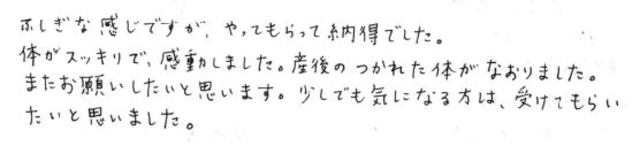 ふしぎな感じですが、やってもらって納得でした。
体がスッキリで、感動しました。産後のつかれた体がなおりました。
またお願いしたいと思います。少しでも気になる方は、受けてもらい
たいと思いました。